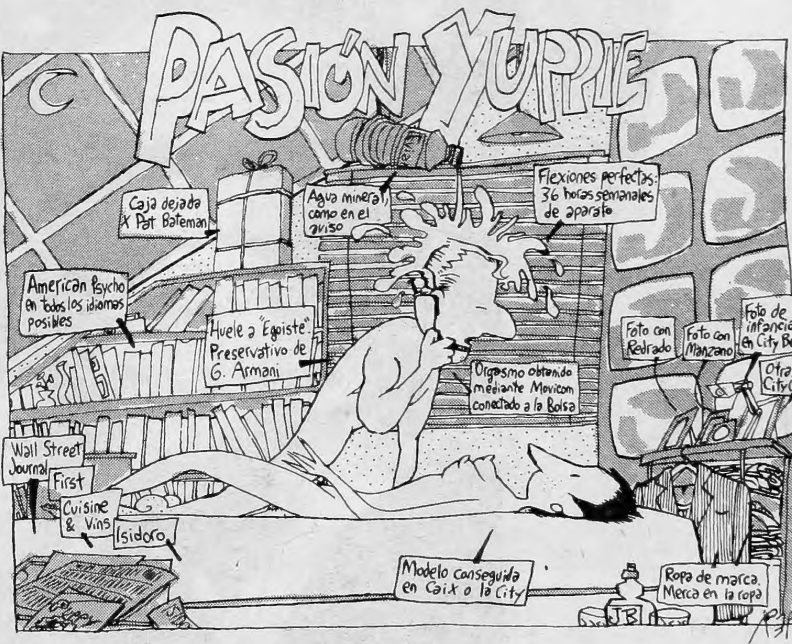 PASIÓN YUPPIE
Caja dejada
x Pat Bateman
Agua mineral,
como en el
aviso
Flexiones perfectas:
36 horas semanales
de aparato
American Psycho
en todos los idiomas
posibles
Huele a "Egoiste".
Preservativo de
G. Armani
Orgasmo obtenido
mediante Movicom
conectado a la Bolsa
Foto con
Redrado
Foto con
Manzano
Foto de
infancia
en City Be
Otra
City
Wall Street
Journal
First
Cuisine
& Vins
Isidoro
Modelo conseguida
en Caix o la City
Ropa de marca.
Merca en la ropa
JB